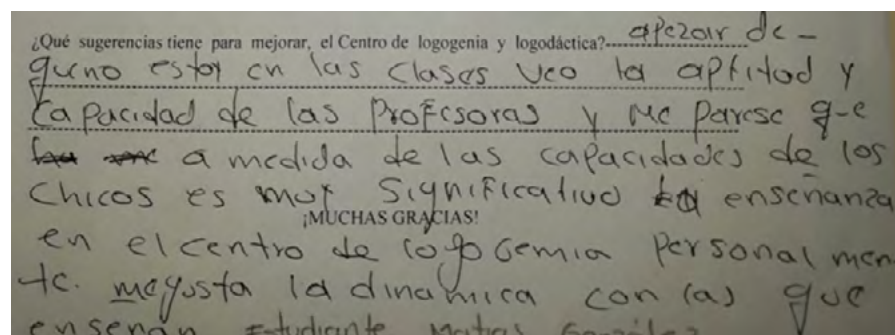 ¿Qué sugerencias tiene para mejorar, el Centro de logogenia y logodáctica? apezar de -
queno estoy en las clases veo la aptitod y
capacidad de las profesoras y me parese q-e
a medida de las capacidades de los
chicos es moy significativo la enseñanza
¡MUCHAS GRACIAS!
en el centro de logogemia personal men-
te. megusta la dinamica con las que
enseñan Estudiante Matias